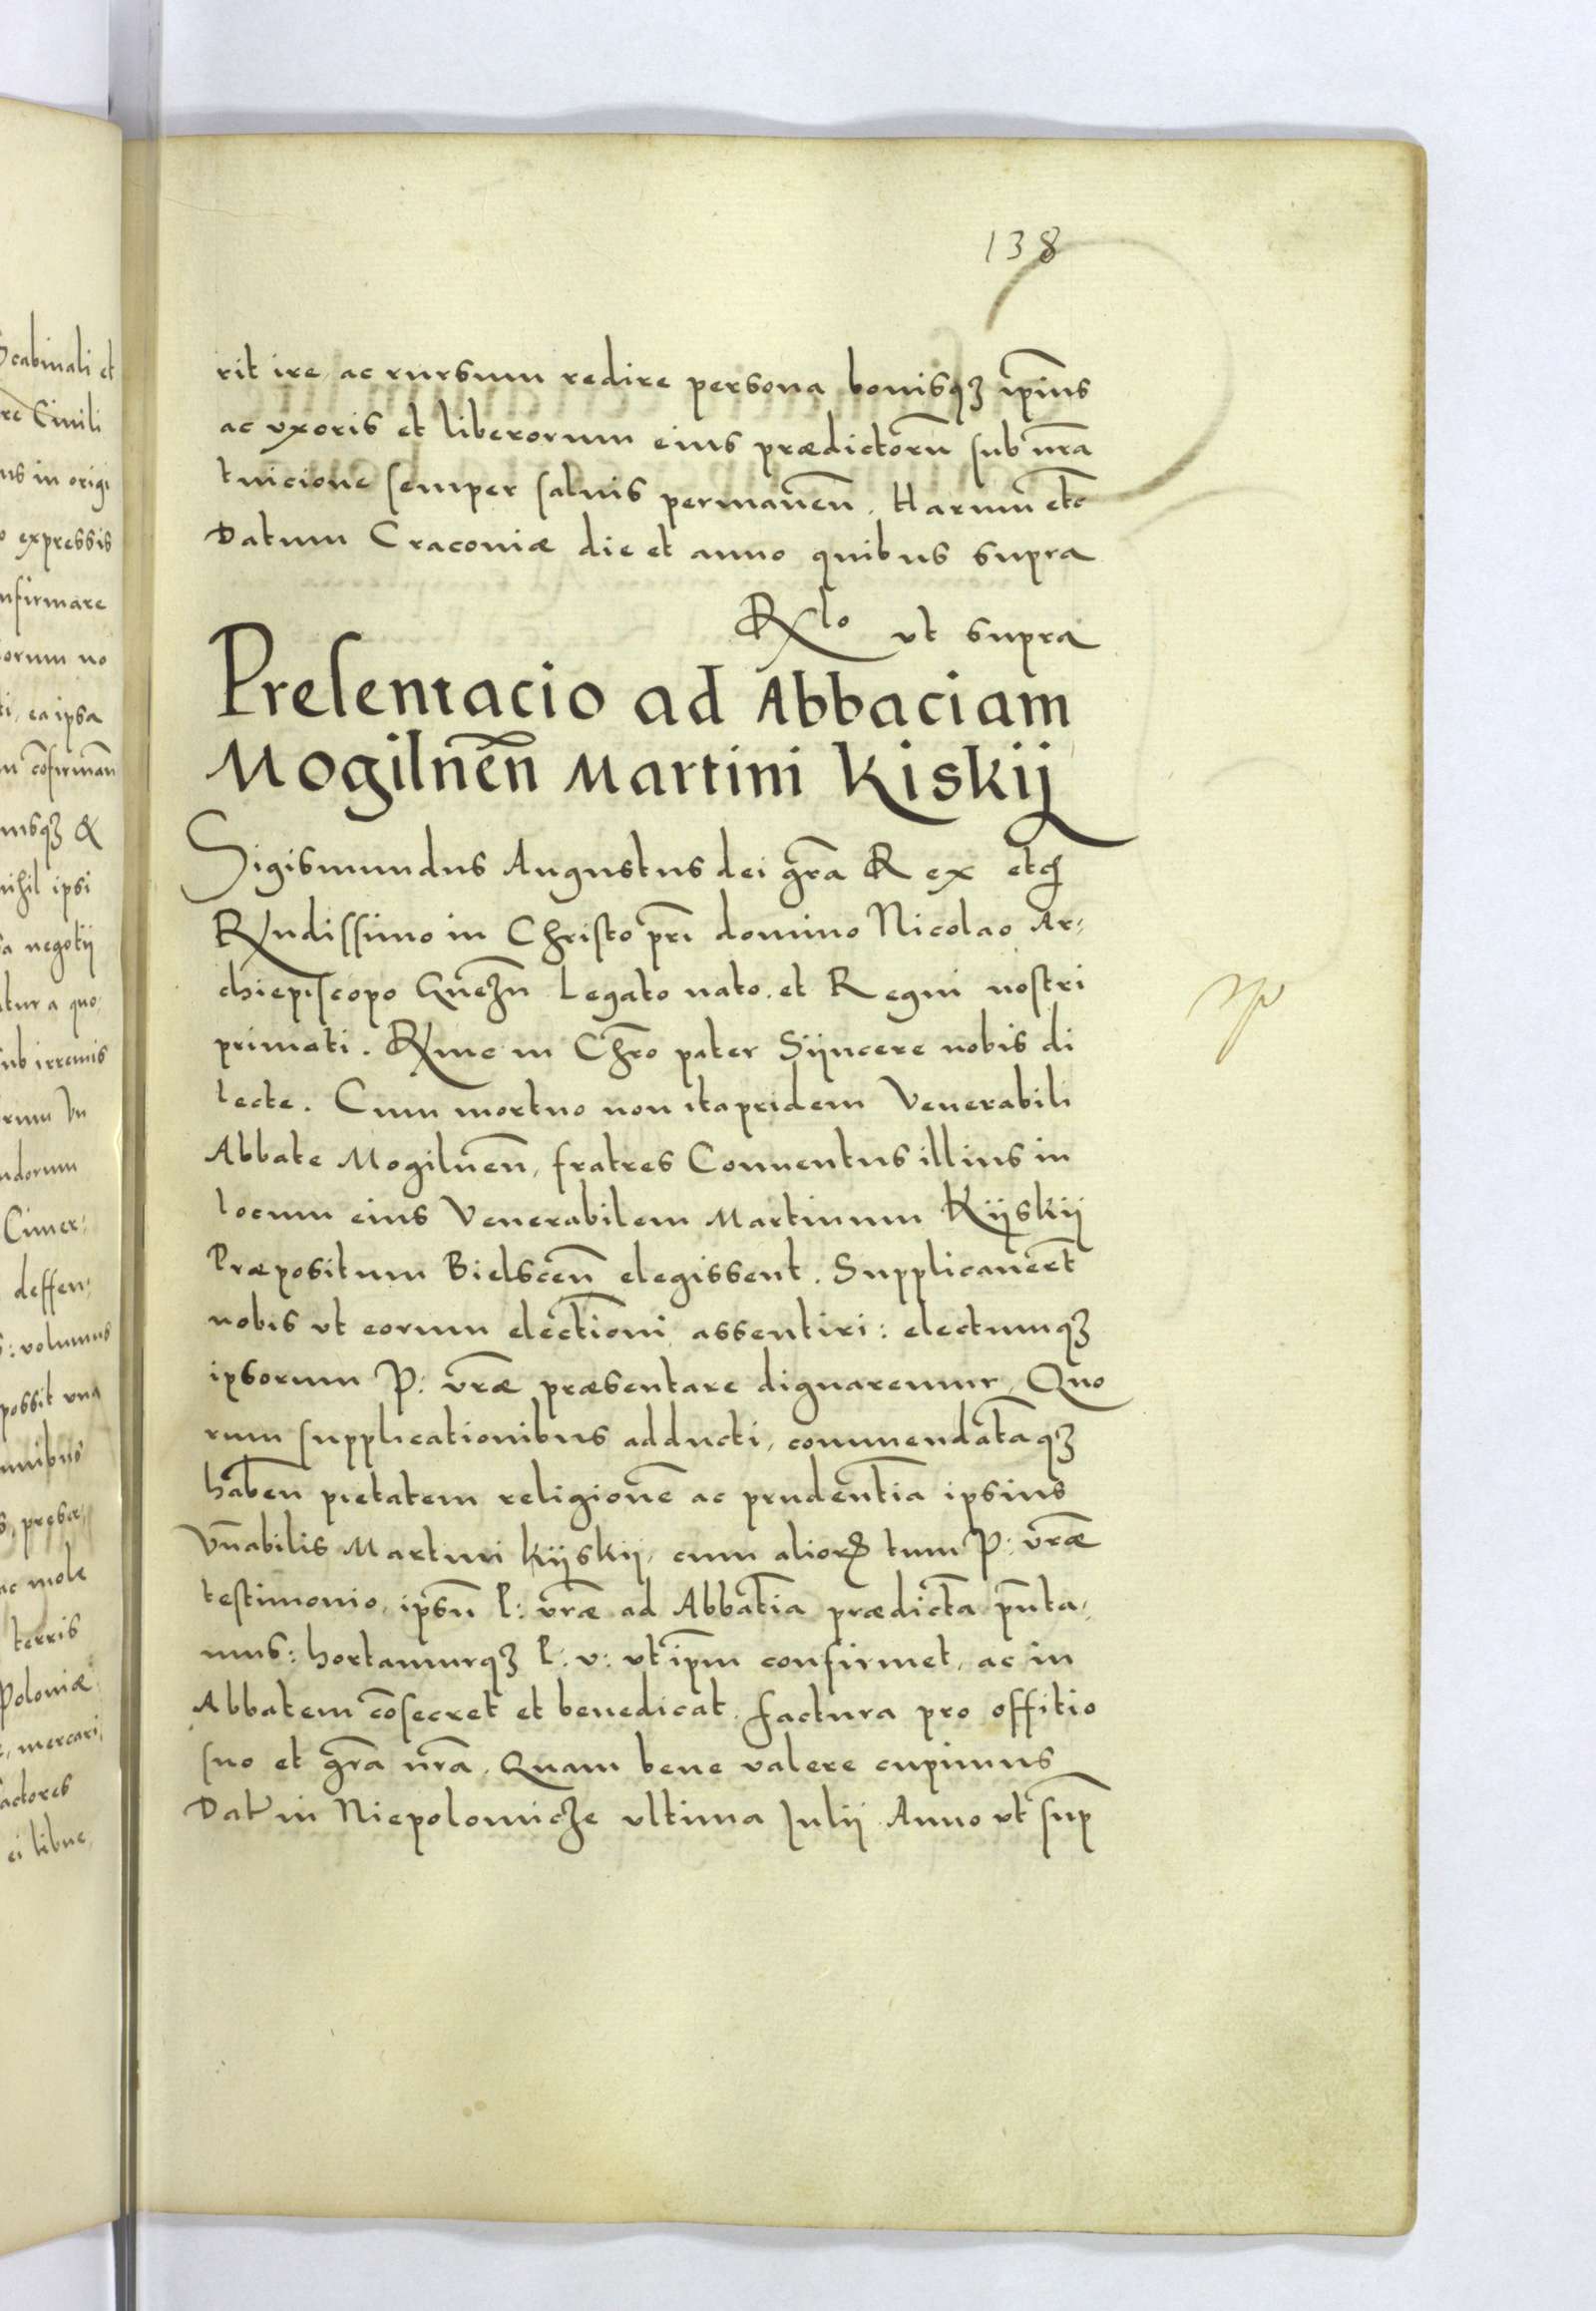 138
rit ire, ac rursum redire persona bonisqꝫ ip̄ius
ac vxoris et liberorum eius prædictorū sub nr̄a
tuicione semper saluis permanen̄. Harum etc̄
Datum Cracoviæ die et anno quibus supra
Rlo vt supra
Presentacio ad Abbaciam
Mogilnen̄ Martini Kiskij
Sigismundus Augustus dei gr̄a Rex etc
Rndissimo in Christo pr̄i domino Nicolao Ar-
chiepiscopo Gneznn̄ Legato nato. et Regni nostri
primati. Rme in Chr̄o pater Sÿncere nobis di
lecte. Cum mortuo non itapridem Venerabili
Abbate Mogilnen̄, fratres Conuentus illius in
locum eius Venerabilem Martinum Kijskij
Præpositum Bielscen̄ elegissent. Supplicauer̄t
nobis vt eorum electioni assentiri: electumqꝫ
ipsorum P: vr̄æ præsentare dignaremur, Quo
rum supplicationibus adducti, commendatāqꝫ
haben̄ pietatem religionē ac prudentiā ipsius
Vn̄abilis Martini Kijskij, cum alioꝝ tum P: vr̄æ
testimonio, ipsū P: vr̄æ ad Abbatiā prædictā pn̄ta-
mus: hortamurqꝫ P. v: vt ip̄m confirmet, ac in
Abbatem cōsecret et benedicat. factura pro offitio
suo et gr̄a nr̄a. Quam bene valere cupimus
Dat in Niepolomicze vltima Julii Anno vt sup̄
Scabinali et
re Ciuili
ns in origi
o expressis
nfirmare
orum no
ti, ea ipsa
m cōfirman̄
nisqꝫ &
nihil ipsi
a negotij
tur a quo-
sub irremis
rum Vn
ndorum
Ciner-
deffen-
s: volumus
possit vna
mnibus
s, preser-
ac mole
terris
Poloniæ
e, mercari,
factores
ei libue,